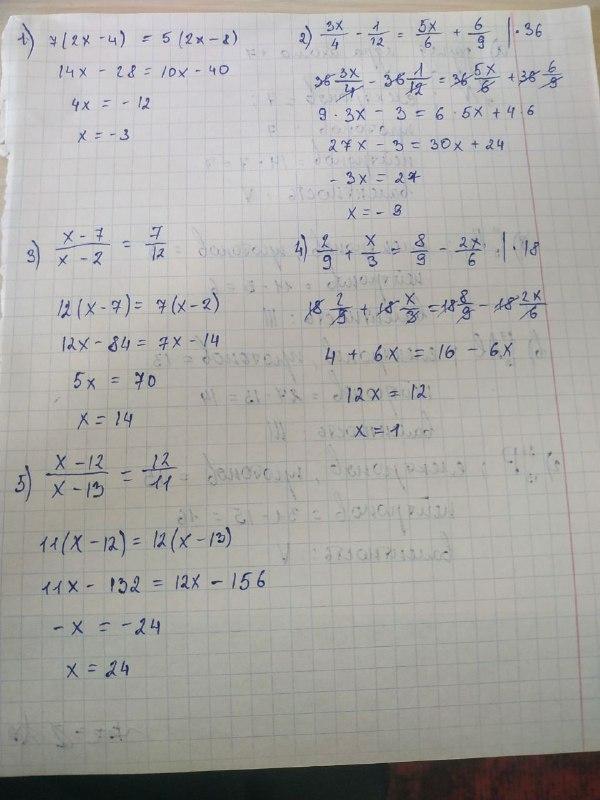 1) 7(2x-4) = 5(2x-8)
14x - 28 = 10x - 40
4x = -12
x = -3
2) 3x/4 - 1/12 = 5x/6 + 6/9 | · 36
36 3x/4 - 36 1/12 = 36 5x/6 + 36 6/9
9 · 3x - 3 = 6 · 5x + 4·6
27x - 3 = 30x + 24
-3x = 27
x = -9
3) (x-7)/(x-2) = 7/12
12(x-7) = 7(x-2)
12x - 84 = 7x - 14
5x = 70
x = 14
4) 2/9 + x/3 = 8/9 - 2x/6 | · 18
18 2/9 + 18 x/3 = 18 8/9 - 18 2x/6
4 + 6x = 16 - 6x
12x = 12
x = 1
5) (x-12)/(x-13) = 12/11
11(x-12) = 12(x-13)
11x - 132 = 12x - 156
-x = -24
x = 24